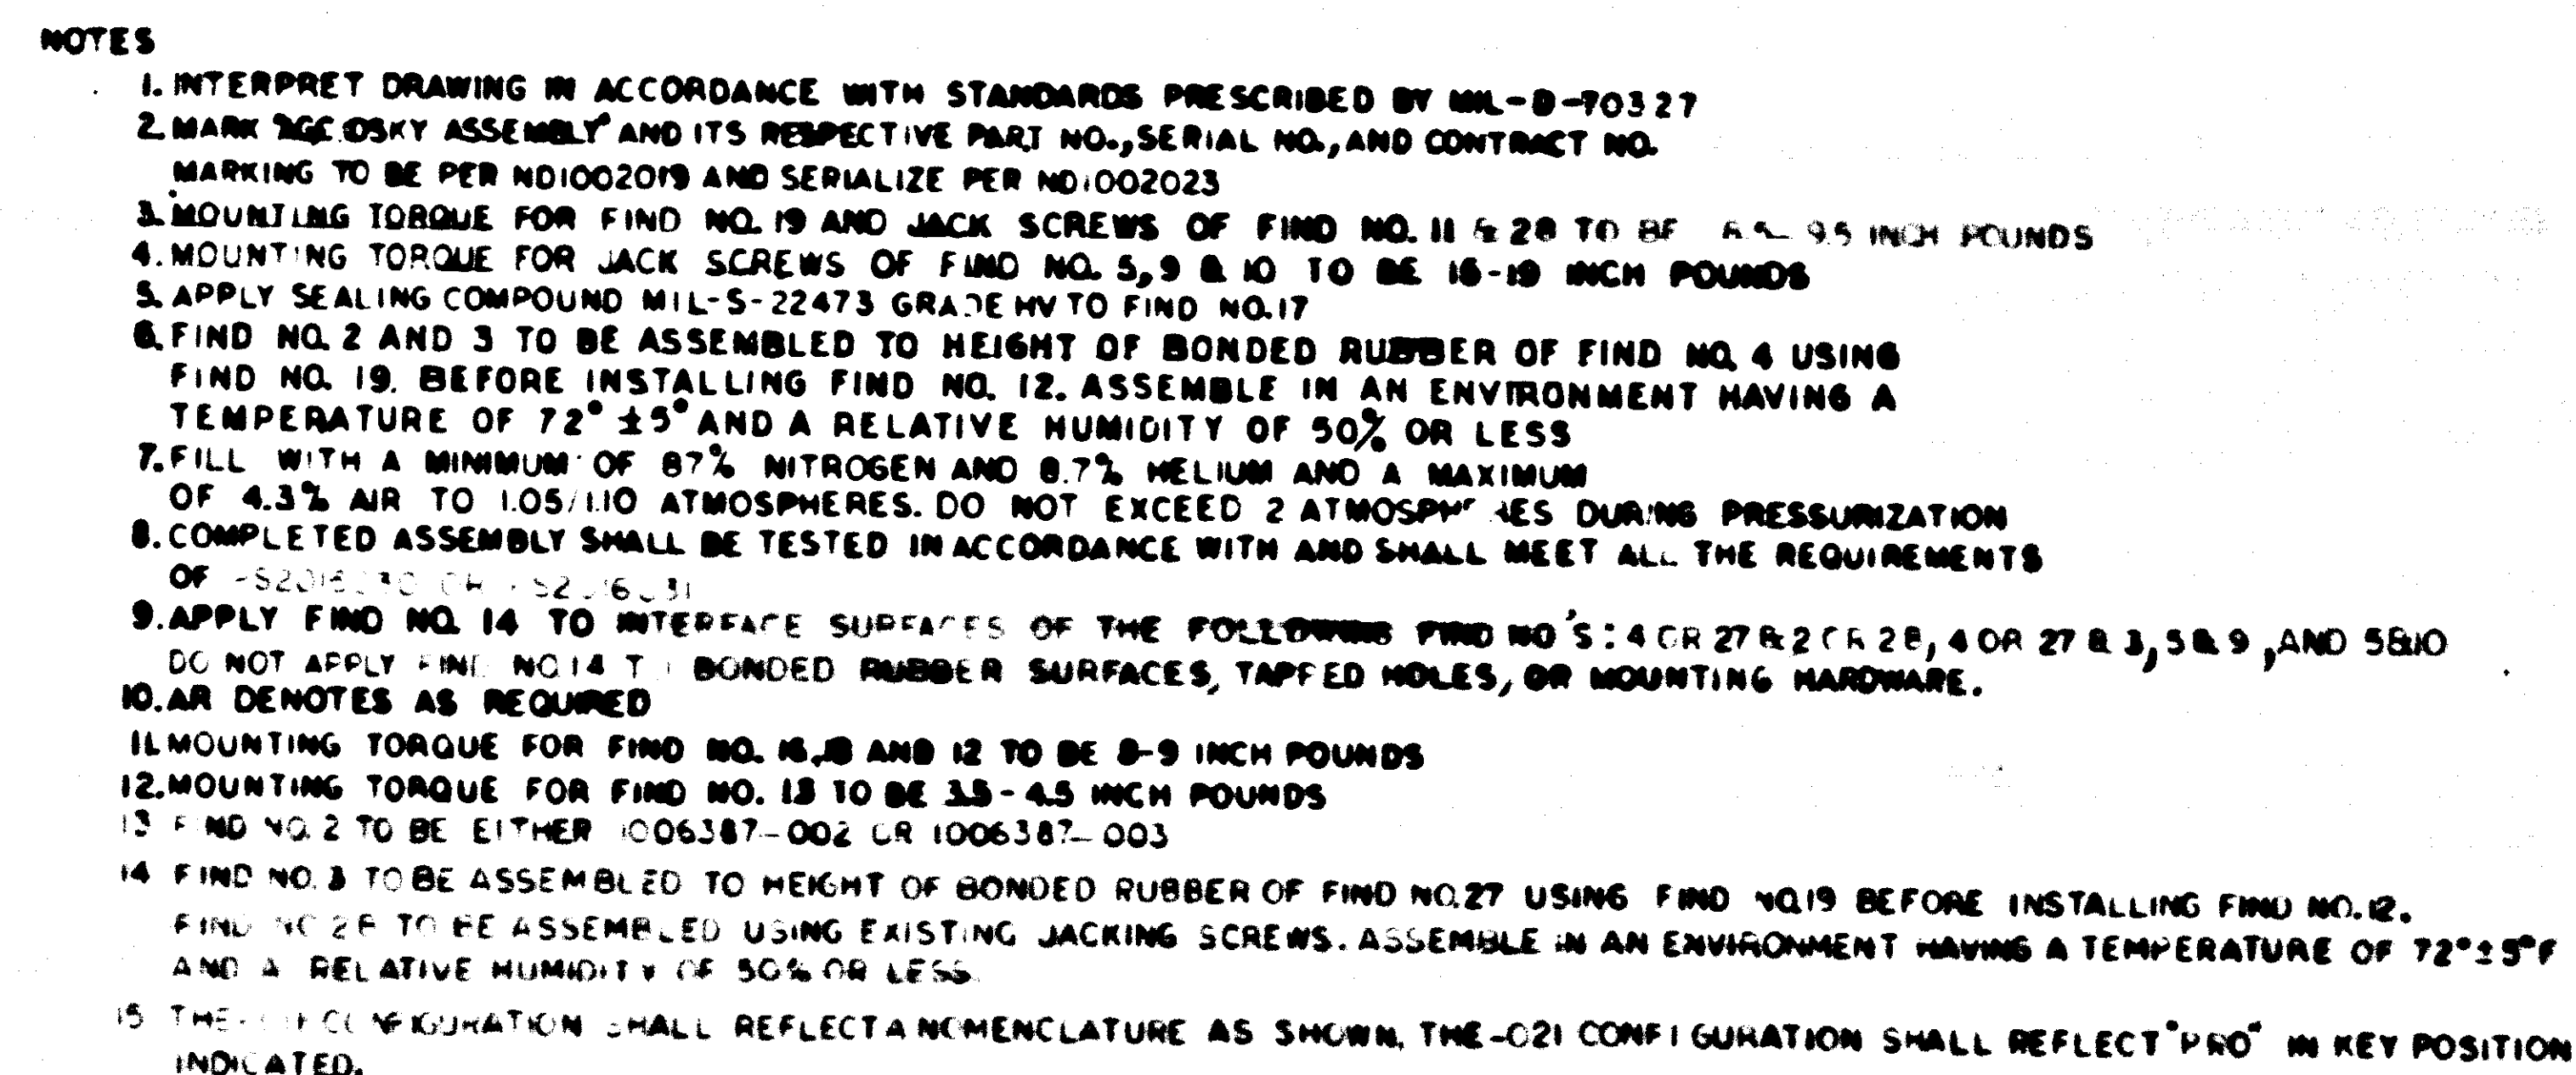 NOTES
1. INTERPRET DRAWING IN ACCORDANCE WITH STANDARDS PRESCRIBED BY MIL-D-70327
2. MARK "AGC DSKY ASSEMBLY" AND ITS RESPECTIVE PART NO., SERIAL NO., AND CONTRACT NO.
MARKING TO BE PER ND1002019 AND SERIALIZE PER ND1002023
3. MOUNTING TORQUE FOR FIND NO. 19 AND JACK SCREWS OF FIND NO. 11 & 28 TO BE 9.5 INCH POUNDS
4. MOUNTING TORQUE FOR JACK SCREWS OF FIND NO. 5, 9 & 10 TO BE 16-19 INCH POUNDS
5. APPLY SEALING COMPOUND MIL-S-22473 GRADE HV TO FIND NO. 17
6. FIND NO. 2 AND 3 TO BE ASSEMBLED TO HEIGHT OF BONDED RUBBER OF FIND NO. 4 USING
FIND NO. 19. BEFORE INSTALLING FIND NO. 12. ASSEMBLE IN AN ENVIRONMENT HAVING A
TEMPERATURE OF 72° ±5° AND A RELATIVE HUMIDITY OF 50% OR LESS
7. FILL WITH A MINIMUM OF 87% NITROGEN AND 8.7% HELIUM AND A MAXIMUM
OF 4.3% AIR TO 1.05/1.10 ATMOSPHERES. DO NOT EXCEED 2 ATMOSPHERES DURING PRESSURIZATION
8. COMPLETED ASSEMBLY SHALL BE TESTED IN ACCORDANCE WITH AND SHALL MEET ALL THE REQUIREMENTS
OF
9. APPLY FIND NO. 14 TO INTERFACE SURFACES OF THE FOLLOWING FIND NO'S: 4 OR 27 & 2 OR 28, 4 OR 27 & 3, 5 & 9, AND 5&10
DO NOT APPLY FIND NO. 14 TO BONDED RUBBER SURFACES, TAPPED HOLES, OR MOUNTING HARDWARE.
10. AR DENOTES AS REQUIRED
11. MOUNTING TORQUE FOR FIND NO. 16, 18 AND 12 TO BE 8-9 INCH POUNDS
12. MOUNTING TORQUE FOR FIND NO. 13 TO BE 3.5-4.5 INCH POUNDS
13 FIND NO. 2 TO BE EITHER 1006387-002 OR 1006387-003
14 FIND NO. 3 TO BE ASSEMBLED TO HEIGHT OF BONDED RUBBER OF FIND NO. 27 USING FIND NO. 19 BEFORE INSTALLING FIND NO. 12.
FIND NO 28 TO BE ASSEMBLED USING EXISTING JACKING SCREWS. ASSEMBLE IN AN ENVIRONMENT HAVING A TEMPERATURE OF 72°±5°F
AND A RELATIVE HUMIDITY OF 50% OR LESS.
15 THE CONFIGURATION SHALL REFLECT A NOMENCLATURE AS SHOWN. THE -021 CONFIGURATION SHALL REFLECT "PRO" IN KEY POSITION
INDICATED.